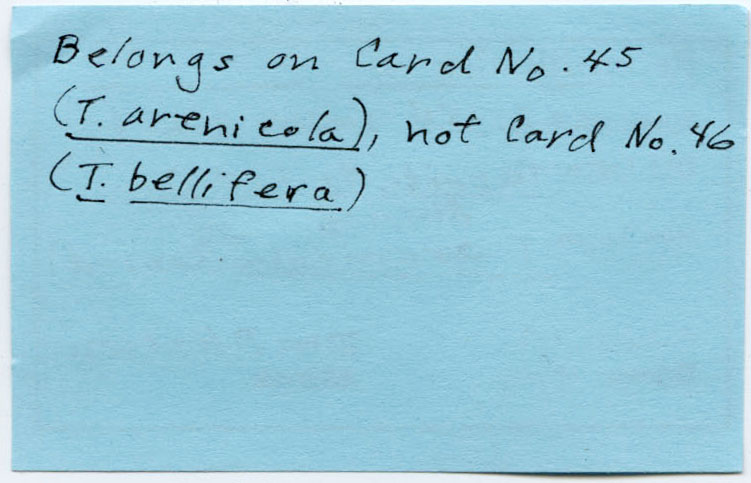 Belongs on Card No. 45
(T. arenicola), not Card No. 46
(T. bellifera)